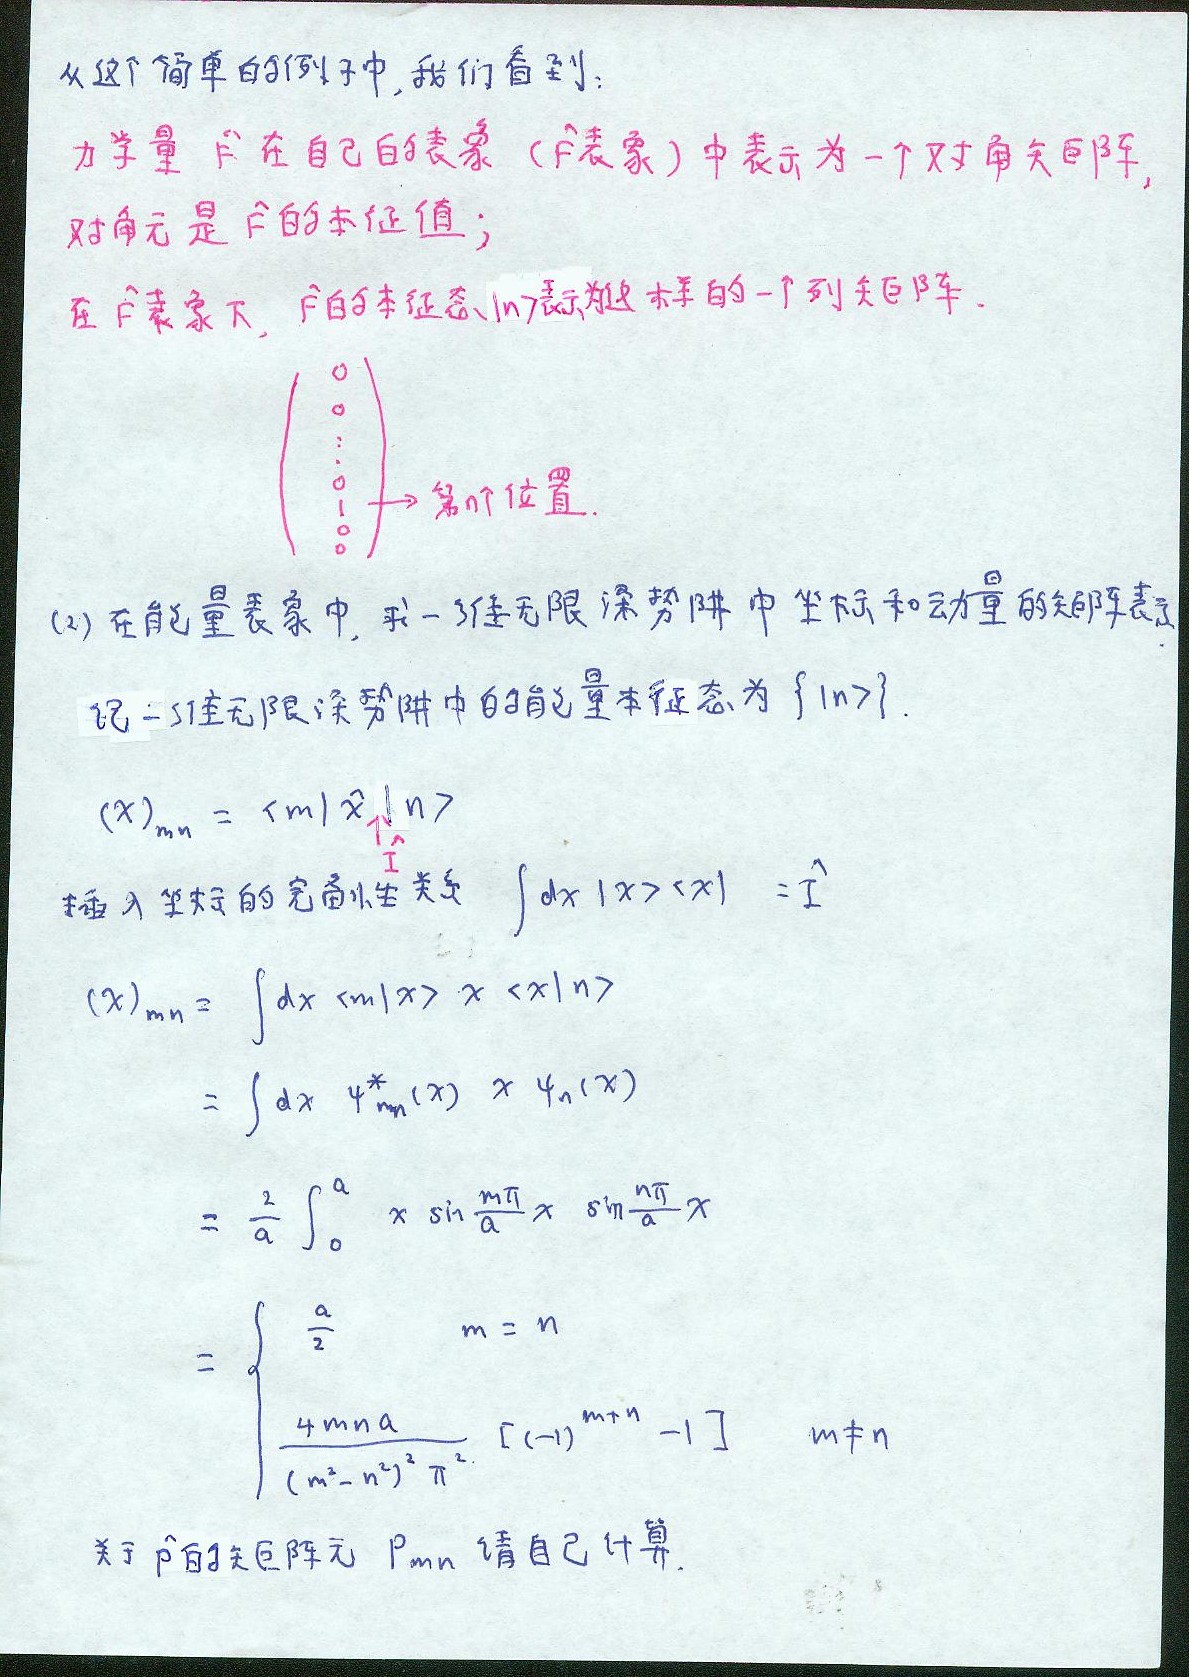 从这个简单的例子中,我们看到:
力学量 F̂ 在自己的表象 (F̂表象) 中表示为一个对角矩阵,
对角元是 F̂ 的本征值;
在 F̂ 表象下, F̂的本征态 |n>表示为这样的一个列矩阵.
0
0
⋮
0
1 → 第n个位置.
0
0
(2) 在能量表象中, 求一维无限深势阱中坐标和动量的矩阵表示.
记一维无限深势阱中的能量本征态为 {|n>}.
(x)mn = <m| x̂ |n>
↑ Î
插入坐标的完备性关系 ∫dx |x><x| = Î
(x)mn = ∫dx <m|x> x <x|n>
= ∫dx ψ*m(x) x ψn(x)
= 2/a ∫₀ᵃ x sin mπ/a x sin nπ/a x
= { a/2 m = n
4mna/((m²-n²)²π²) [(-1)^(m+n) -1] m≠n
关于 p̂的矩阵元 Pmn 请自己计算.